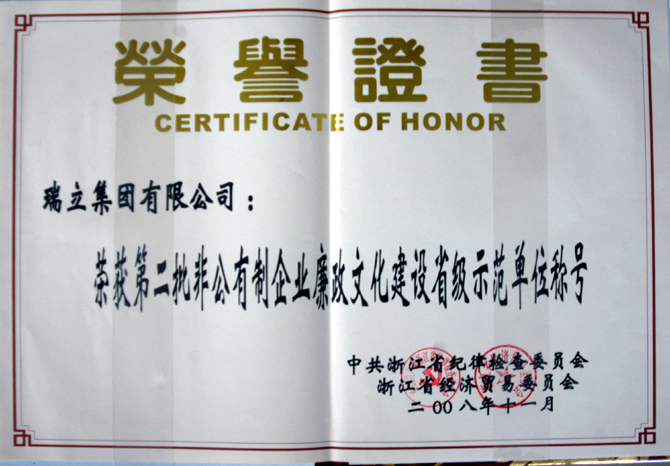 榮譽證書
CERTIFICATE OF HONOR
瑞立集团有限公司：
荣获第二批非公有制企业廉政文化建设省级示范单位称号
中共浙江省纪律检查委员会
浙江省经济贸易委员会
二00八年十一月